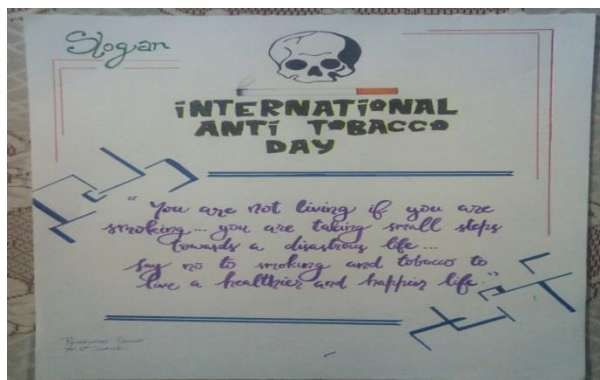 Slogan
iNTERNATiONAL
ANTi TOBACCO
DAY
"You are not living if you are
smoking... you are taking small steps
towards a disastrous life...
Say no to smoking and tobacco to
live a healthier and happier life."